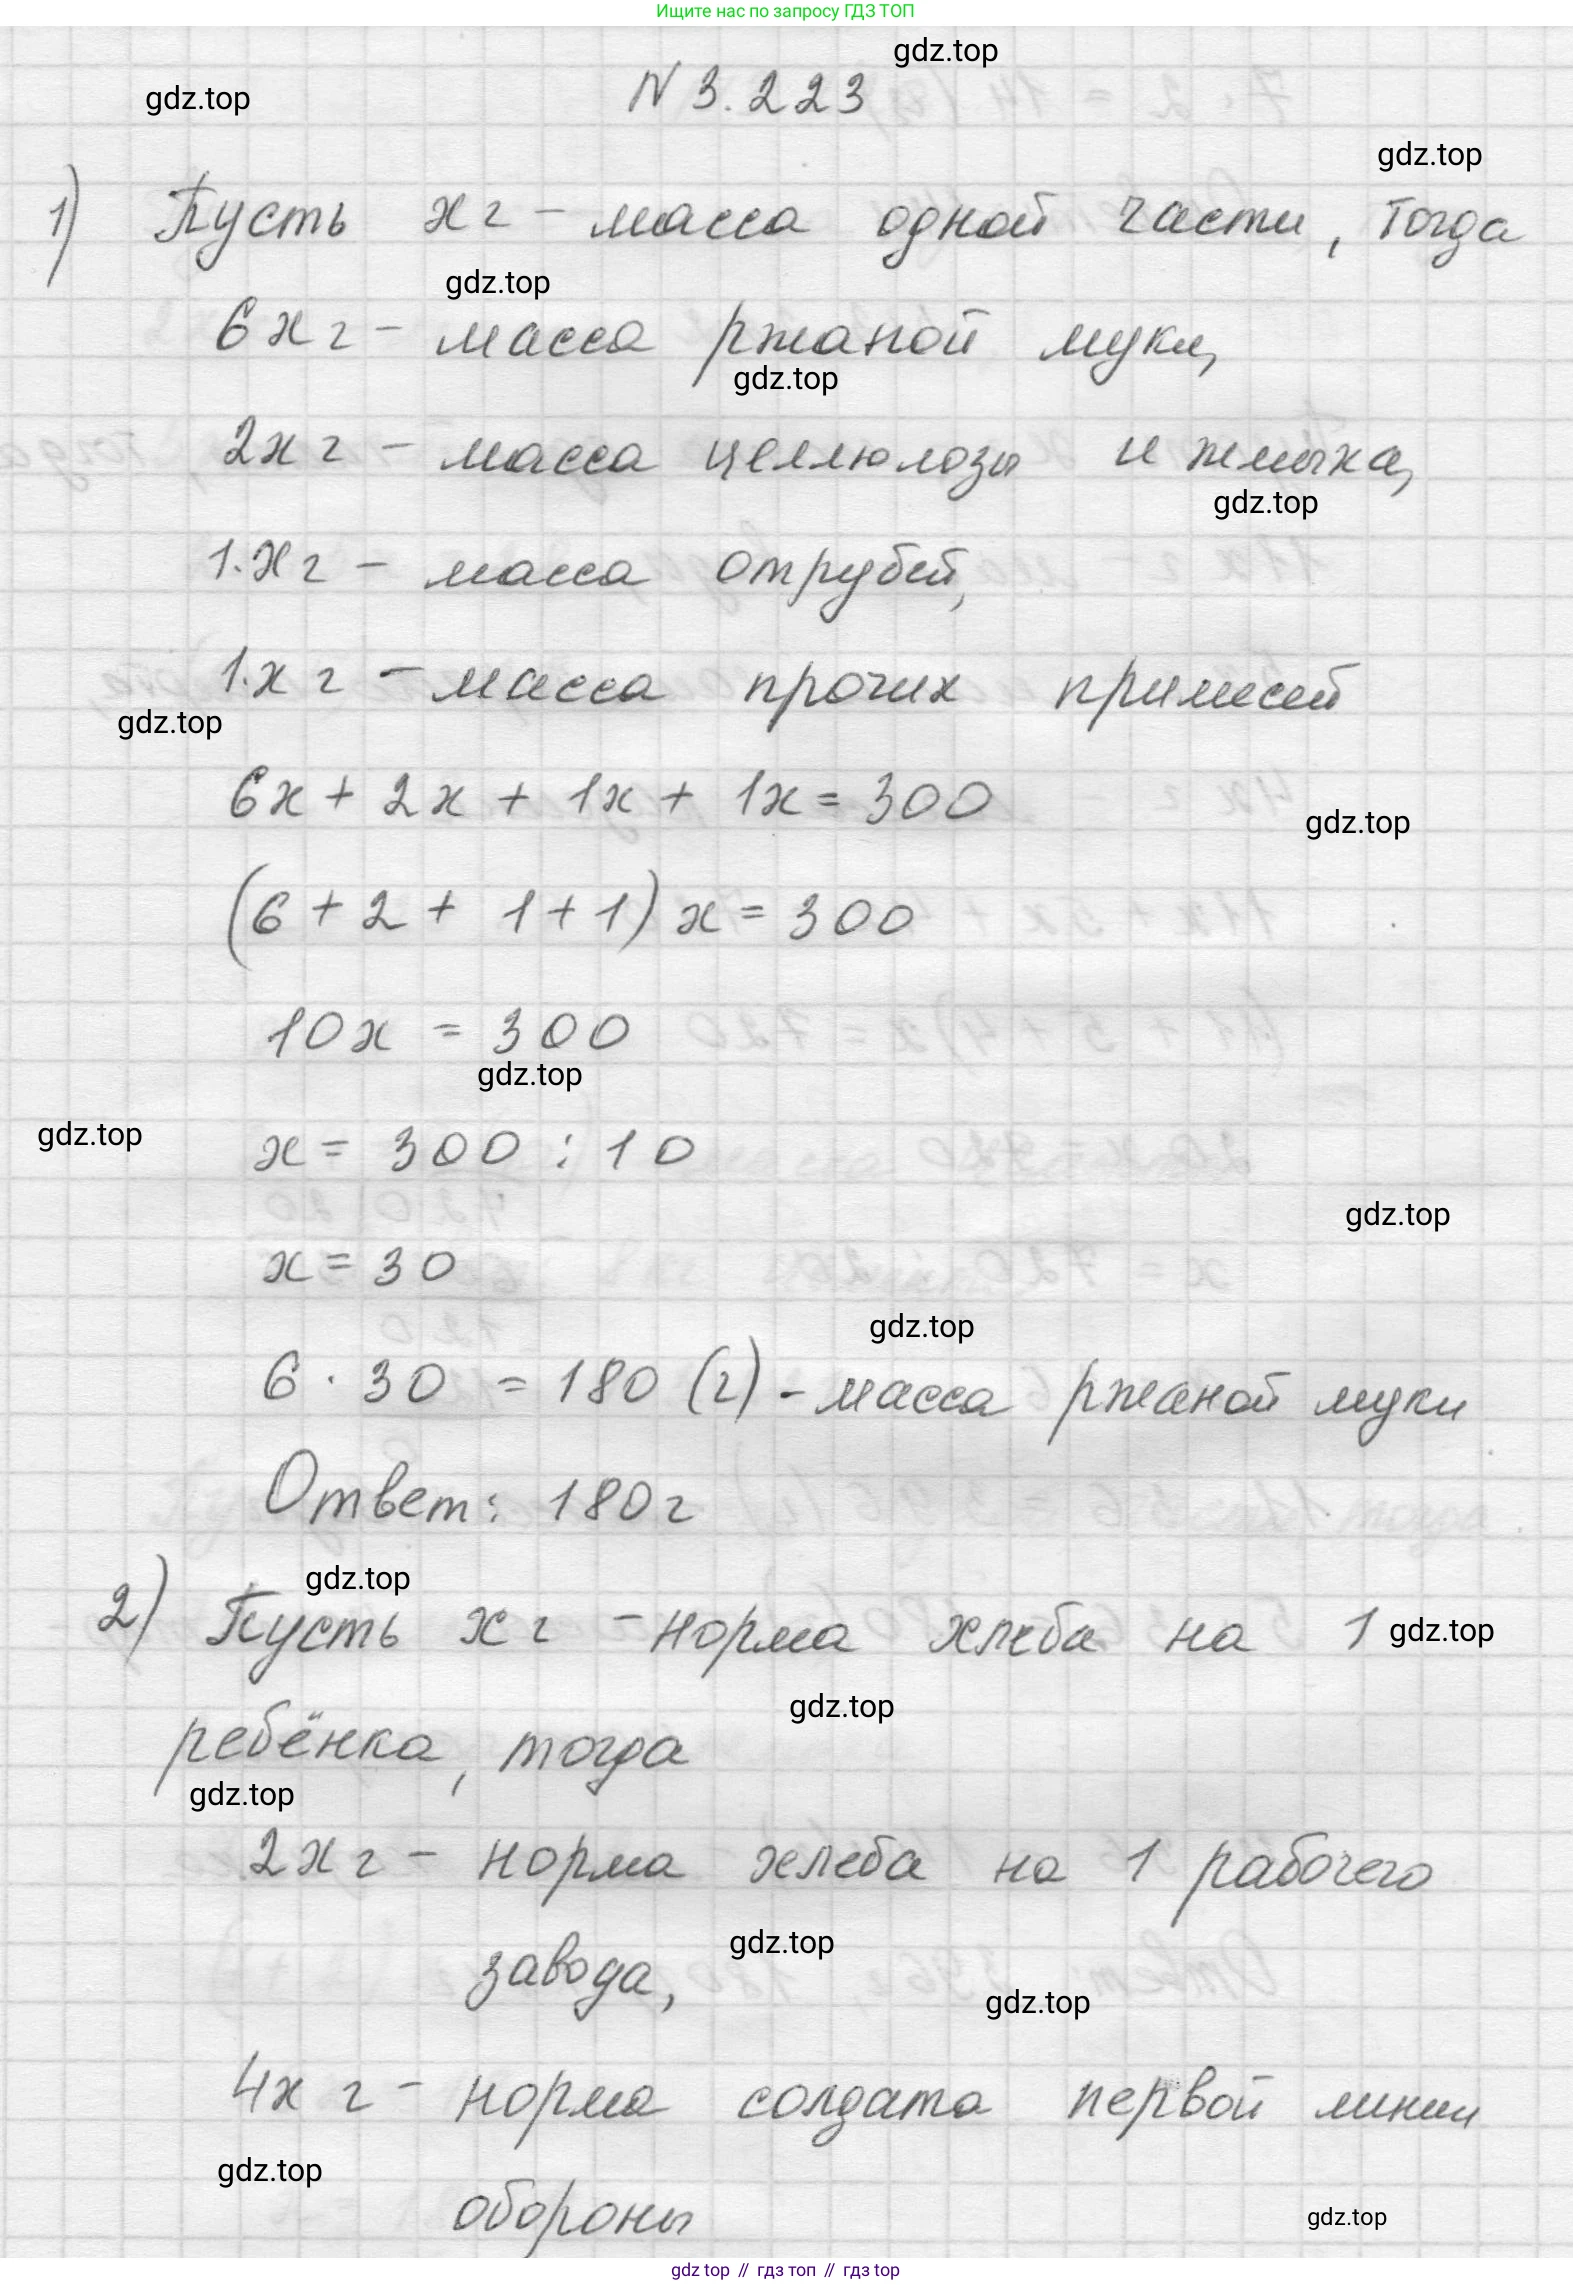 Ищите нас по запросу ГДЗ ТОП
gdz.top
N 3.223
gdz.top
gdz.top
1) Пусть x г – масса одной части, тогда
gdz.top
6x г – масса ржаной муки,
gdz.top
2x г – масса целлюлозы и жмыха,
gdz.top
1·x г – масса отрубей,
1·x г – масса прочих примесей
gdz.top
6x + 2x + 1x + 1x = 300
gdz.top
(6 + 2 + 1 + 1) x = 300
10x = 300
gdz.top
gdz.top
x = 300 : 10
gdz.top
x = 30
gdz.top
6 · 30 = 180 (г) – масса ржаной муки
Ответ: 180 г
gdz.top
2) Пусть x г – норма хлеба на 1
gdz.top
gdz.top
ребёнка, тогда
gdz.top
2x г – норма хлеба на 1 рабочего
gdz.top
завода,
gdz.top
4x г – норма солдата первой линии
gdz.top
обороны
gdz.top
gdz top // гдз топ // гдз top